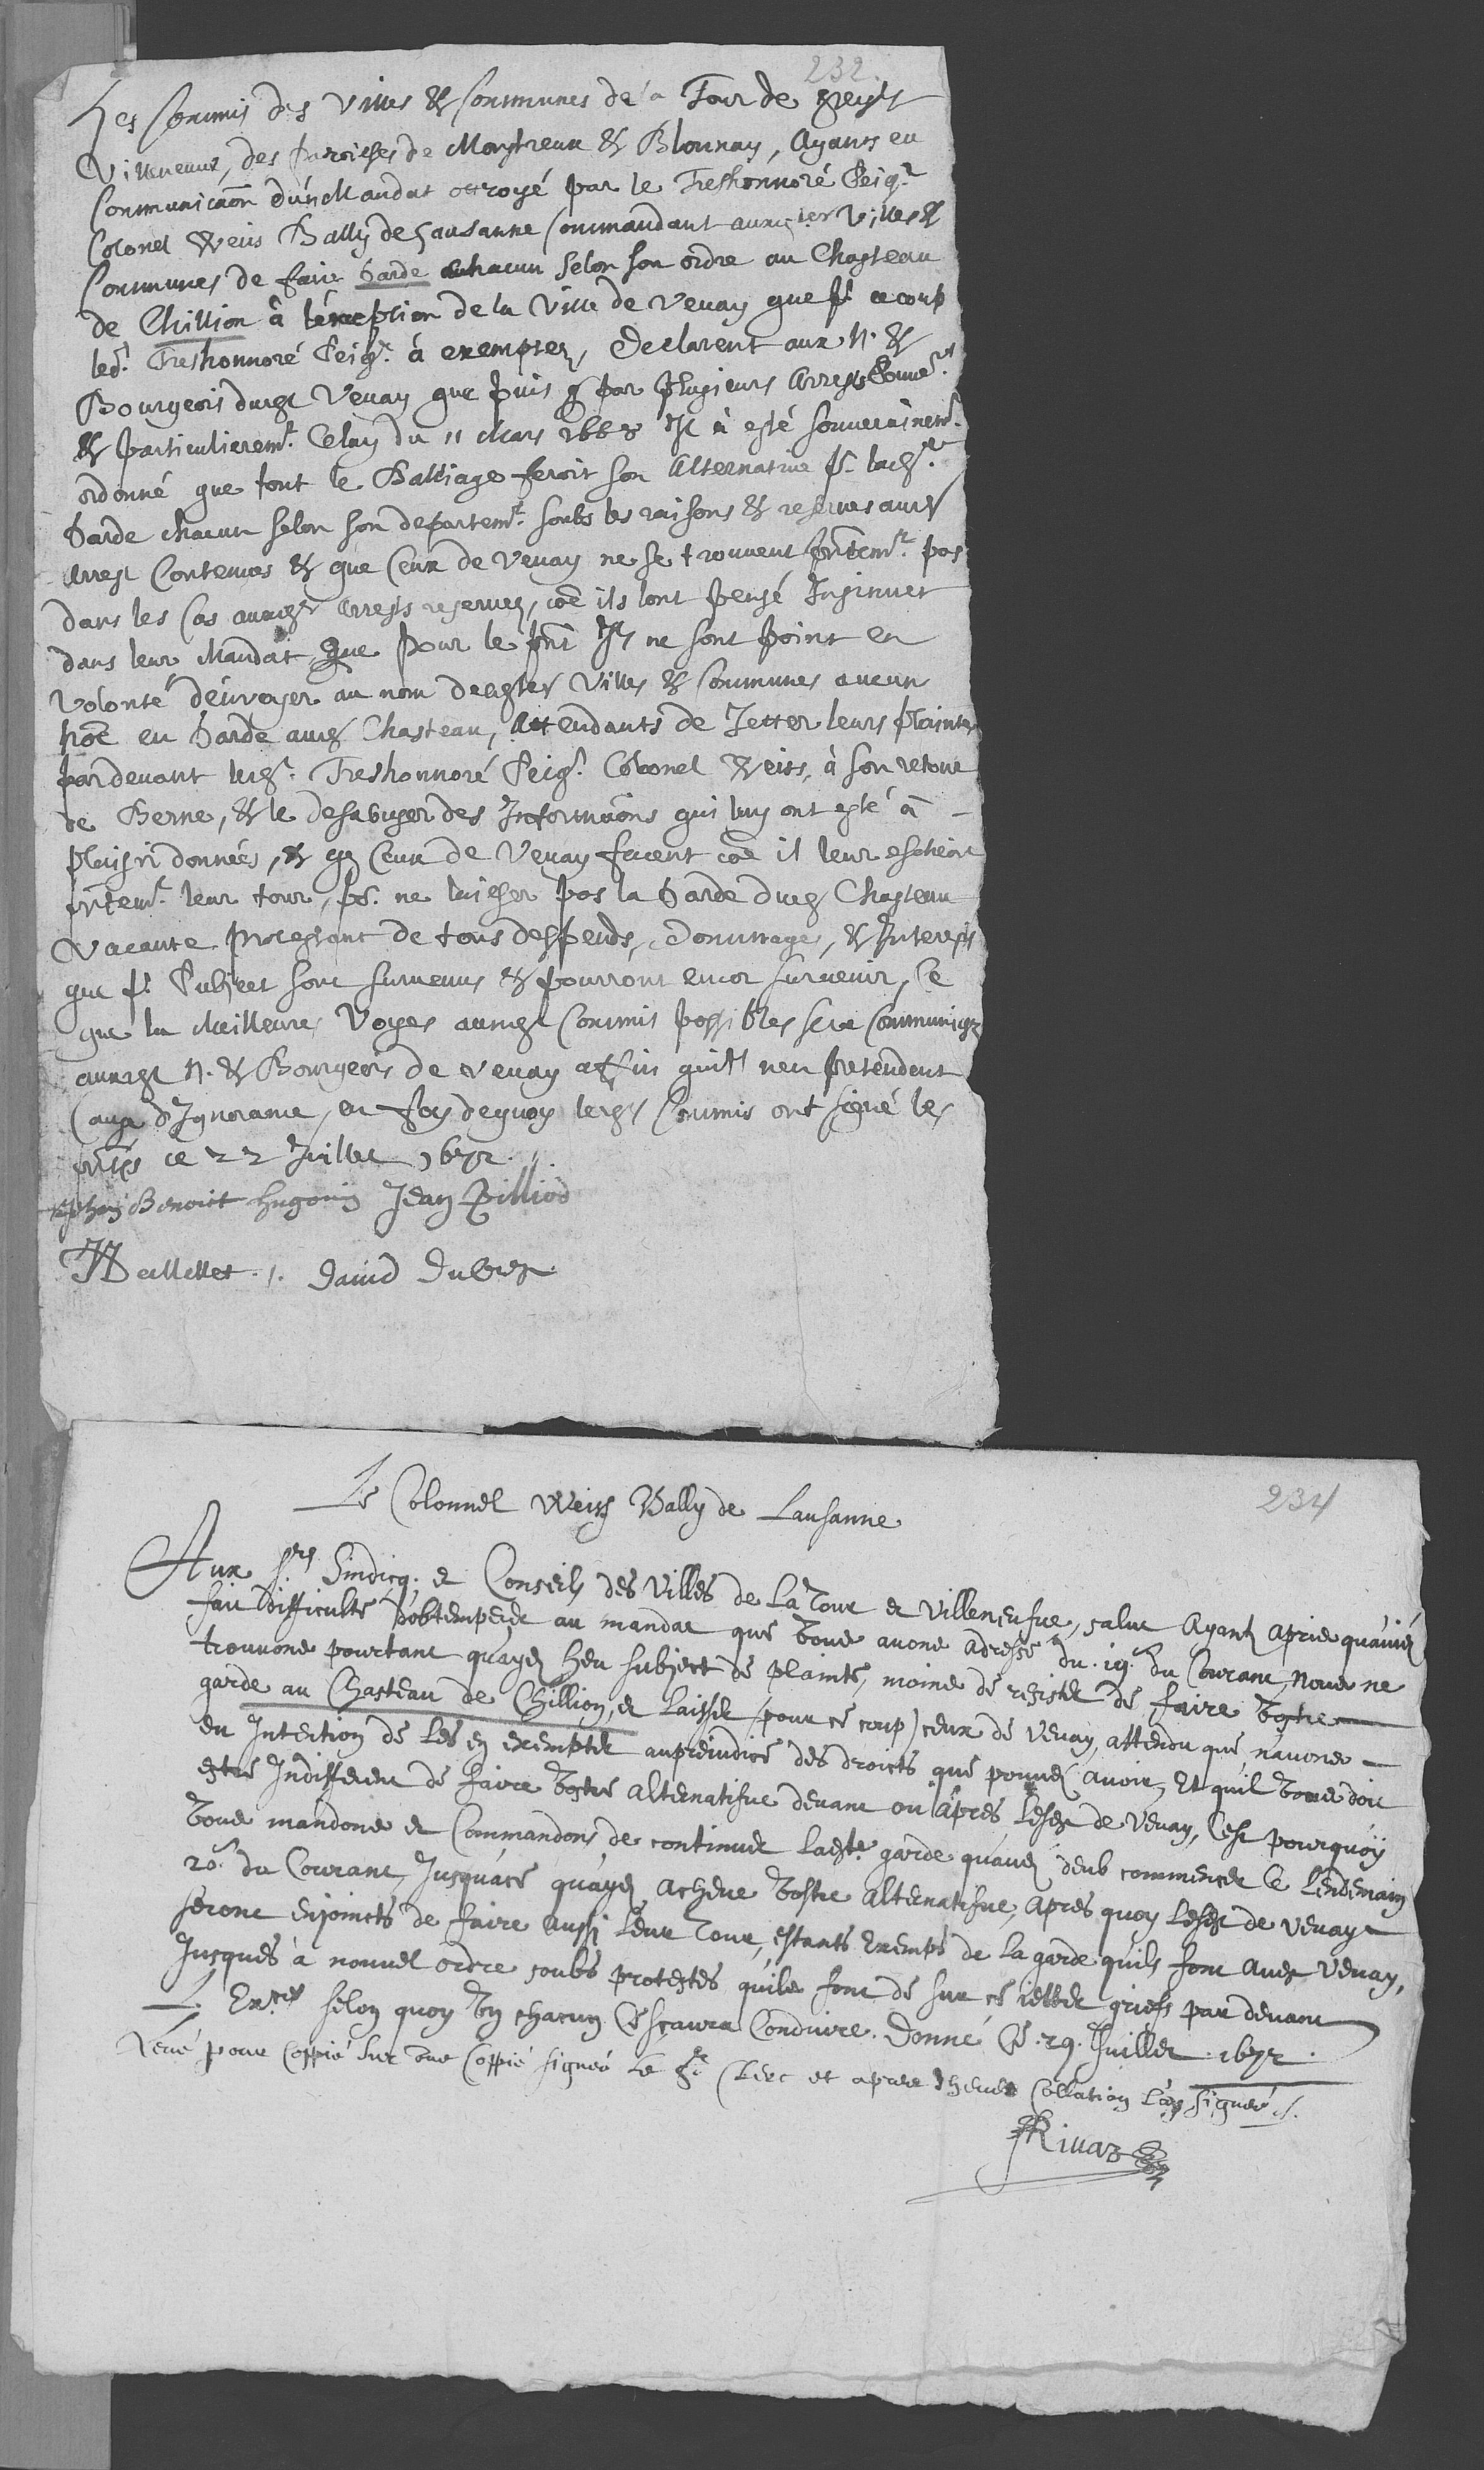 232.
Les Commis des Villes & Communes de la Tour de Peylz
Villeneuue, des paroisses de Monstreux & Blonnay, Ayants eu
Communicaõn d'un Mandat ottroyé par le Treshonnoré Seigr
Colonel Weis Bally de Lausanne Commandant Villes &
Communes de faire Garde chacun selon son ordre au Chasteau
de Chillion à l'exception de la Ville de Veuay que pr ce coup
ledt Treshonnoré Seigr à exempter, Declarent aux N. &
Bourgeois dudt Veuay que puis q par plusieurs Arrests Souuerts
& particulieremt Celuy du 11 Mars 1668 Il à esté souuerainemt
ordonné que tout le Balliage feroit son Alternatiue pr ladte
Garde chacun selon son departemt soubs les raisons & reserues auxd
arrest Contenues & que Ceux de Veuay ne se trouuent pñtemt pas
dans les Cas auxdts arrests reseruez, coẽ ils lont pensé Insinuer
dans leur Mandat Que pour le pñt Ils ne sont point en
Volonté d'enuoyer au nom desdtes Villes & Communes aucun
hõe en Garde audt Chasteau, Attendants de Jetter leurs plaintes
pardeuant ledt Treshonnoré Seigr Colonel Weiss, à son retour
de Berne, & le desabuser des Informaõns qui luy ont esté à -
plaisir données, & q Ceux de Veuay facent coẽ il leur escheoit
pñtemt leur tour, pr ne laisser pas la Garde dudt Chasteau
Vacante protestant de tous despends, Dommages, & Interests
que pr Subject sont suruenus & pourront encor suruenir, Ce
que la Meilleures Voyes auxdt Commis possibles sera Communiqz
auxdt N. & Bourgeois de Veuay affin quils nen pretendent
Cause d'Ignorance, en foy dequoy lesdts Commis ont signé les
pñtes ce 22 Juillet 1672.
Benoict Hugonin Jean Pilliod
David Dubochet
234
Le Colonnel Weiss Bally de Lausanne
Aux Srs Sindicq. et Conseils des Villes de La Tour et Villeneufue, salut Ayants apris quauiez
fait difficulté D'obtemperer au mandat que Vous auons adressé du .19. du Courant, Nous ne
trouuons pourtant quayez heu subject de plainte, moins de resister de faire Vostre
garde au Chasteau de Chillion, et laisser (pour ce coup) ceux de Veuay, attendu que n'auons
eu Intention de les en exempter au prejudice des droicts que pouuez auoir, Et quil vous doit
estre Indifferent de faire Vostre Alternatifue deuant ou apres lesdt de Veuay, C'est pourquoy
Vous mandons et Commandons de continuer ladte garde quauez deub commencer le Lendemain
20e du Courant, Jusqu'à ce quayez acheué Vostre Alternatifue, Apres quoy lesdt de Veuay
seront enjoincts de faire aussi leur Tour, estants Exempts de la garde quils font auec Veuay,
Jusques à nouuel ordre soubs protestes quils font de sur ce jetter griefs par deuant
L. Exces selon quoy Un chacun Ce scaura Conduire. Donné Ce .29. Juillet .1672.
Leué pour Coppié sur une Coppié signeé Le Sr Clerc et apres dheue Collation L'ay signeé.
Riuaz